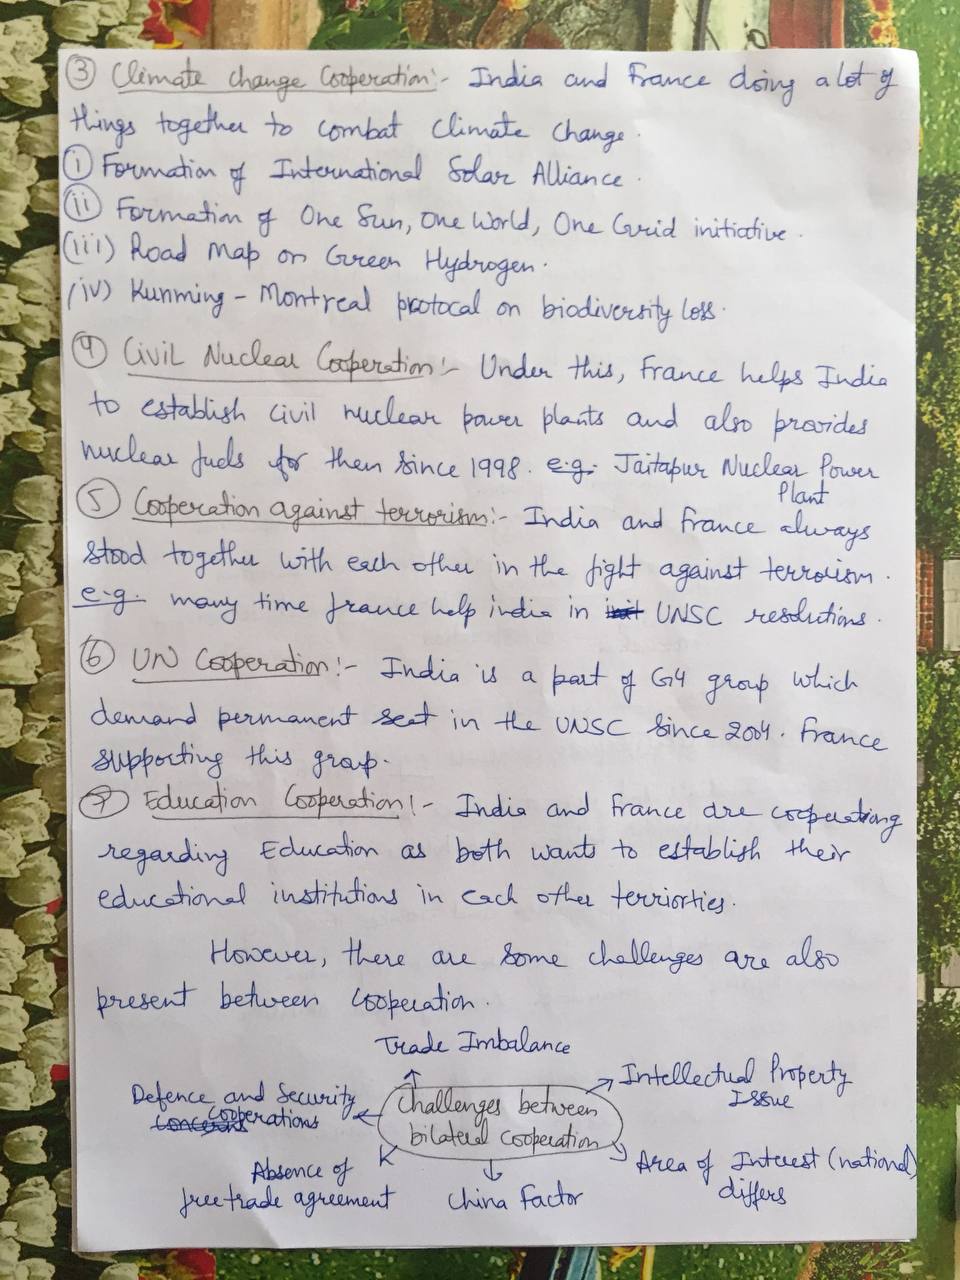 ③ Climate change Cooperation:- India and France doing a lot of
things together to combat Climate Change.
(i) Formation of International Solar Alliance.
(ii) Formation of One Sun, One World, One Grid initiative.
(iii) Road Map on Green Hydrogen.
(iv) Kunming - Montreal protocal on biodiversity loss.
④ Civil Nuclear Cooperation:- Under this, France helps India
to establish civil nuclear power plants and also provides
nuclear fuels for them since 1998. e.g. Jaitapur Nuclear Power
Plant
⑤ Cooperation against terrorism:- India and France always
stood together with each other in the fight against terrorism.
e.g. many time france help india in UNSC resolutions.
⑥ UN Cooperation:- India is a part of G4 group which
demand permanent seat in the UNSC since 2004. France
supporting this group.
⑦ Education Cooperation:- India and France are cooperating
regarding Education as both wants to establish their
educational institutions in each other terriorties.
However, there are some challenges are also
present between cooperation.
Trade Imbalance
Intellectual Property
Issue
Defence and Security
cooperations
Challenges between
bilateral cooperation
Area of Interest (national)
differs
Absence of
free trade agreement
China Factor